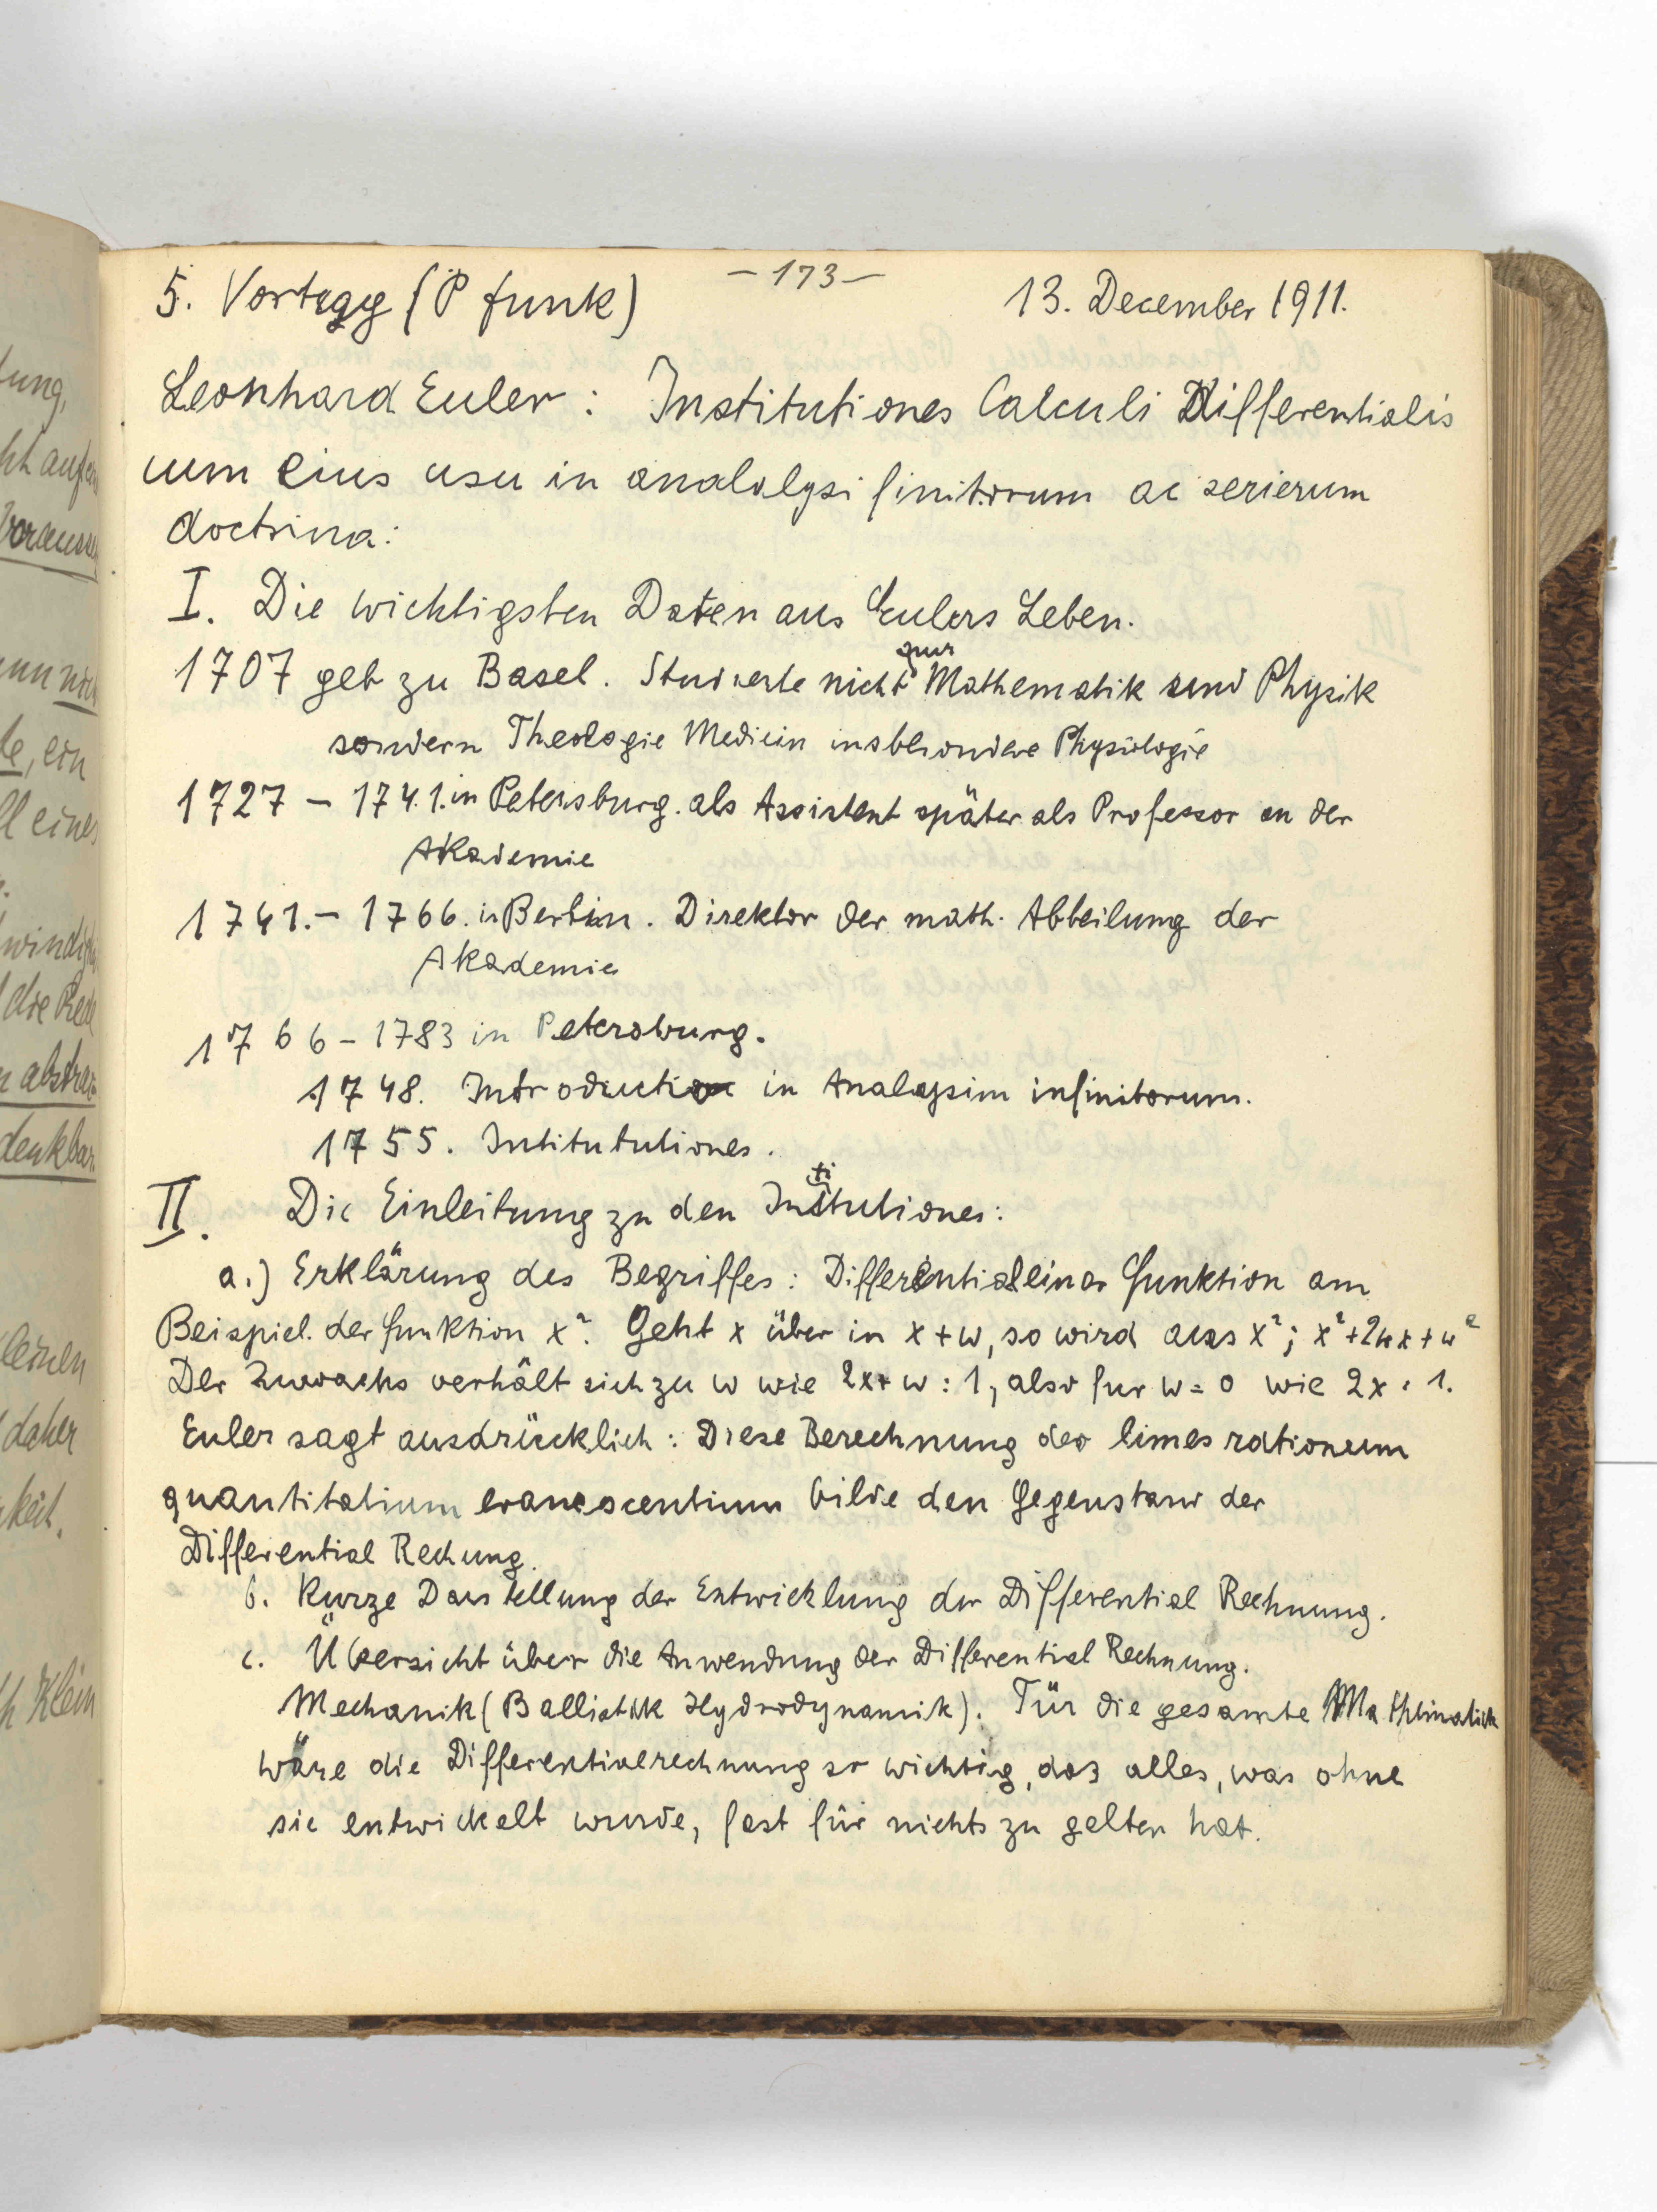 - 173 -
5. Vortrag (P funk) 13. December 1911.
Leonhard Euler : Institutiones Calculi Differentialis
cum eius usu in analalysi finitorum ac serierum
doctrina:
I. Die wichtigsten Daten aus Eulers Leben.
1707 geb zu Basel. Studierte nicht nur Mathematik und Physik
sondern Theologie Medicin insbesondere Physiologie
1727 - 1741. in Petersburg. als Assistent später als Professor an der
Akademie
1741. - 1766. in Berlin. Direktor der math. Abteilung der
Akademie
1766 - 1783 in Petersburg.
1748. Introductio in Analysim infinitorum.
1755. Intitututiones.
II. Die Einleitung zu den Institutiones:
a.) Erklärung des Begriffes: Differential einer Funktion am
Beispiel. der funktion x². Geht x über in x + w, so wird aus x²; x² + 2wx + w²
Der Zuwachs verhält sich zu w wie 2x + w : 1, also fur w = 0 wie 2x : 1.
Euler sagt ausdrücklich: Diese Berechnung des limes rationum
quantitatium evanescentium bilde den Gegenstand der
Differential Rechung.
b. Kurze Darstellung der Entwicklung der Differential Rechnung.
c. Übersicht über die Anwendung der Differential Rechnung.
Mechanik (Ballistik Hydrodynamik). Für die gesamte Mathematik
wäre die Differentialrechnung so wichtig, das alles, was ohne
sie entwickelt wurde, fast für nichts zu gelten hat.
tung,
ht auf
Voraus
nn nich
te, ein
ll eines
windig
die Red
abstra
denkbar
leinen
daher
keit.
h Klein